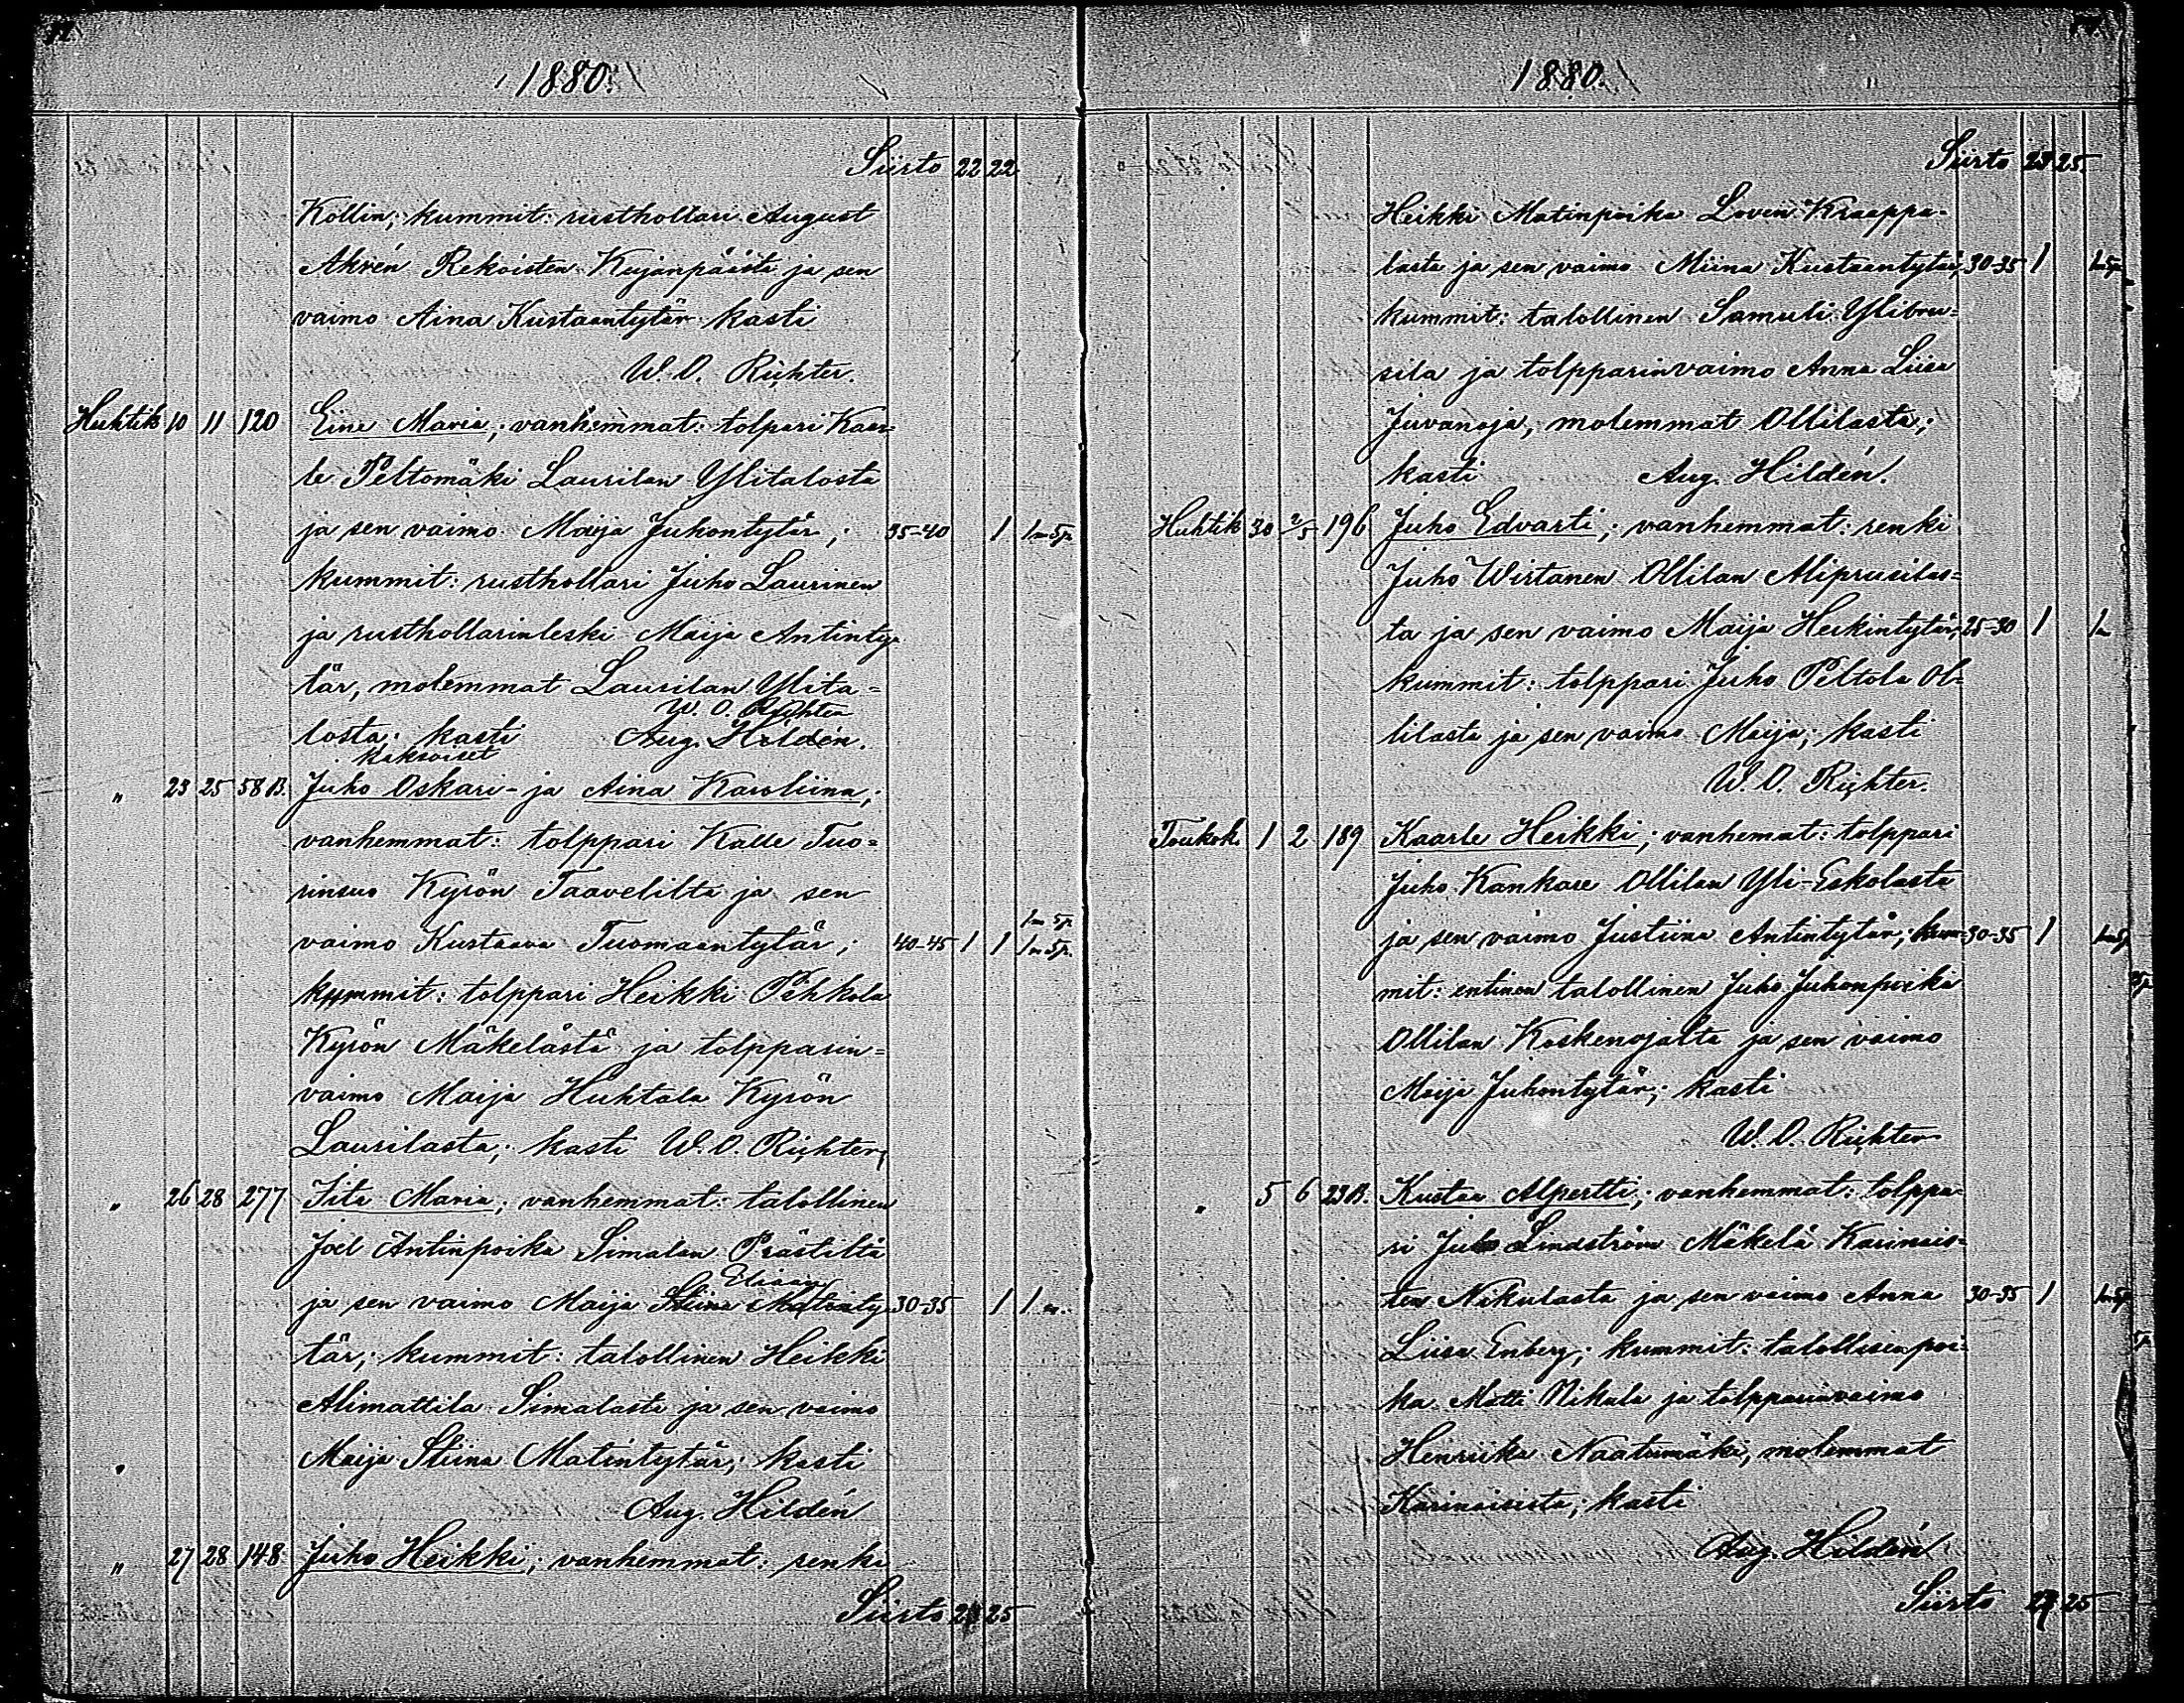 1880.
Siirto 22 22
Kollin; kummit: rusthollari August
Akrén Rekoisten Kujanpäästä ja sen
vaimo Aina Kustaantytär kasti
W. O. Richter.
Huhtik 10 11 120 Eine Maria; vanhemmat: tolpari Kaar=
le Peltomäki Laurilan Ylitalosta
ja sen vaimo Maija Juhontytär; 35-40 1 1m 5p.
kummit: rusthollari Juho Laurinen
ja rusthollarinleski Maija Antinty
tär, molemmat Laurilan Ylita=
W. O. Richter
losta; kasti Aug. Hildén.
kaksoiset
" 23 25 58 B. Juho Oskari - ja Aina Karoliina;
vanhemmat: tolppari Kalle Tuo=
rinsuo Kyrön Taavelilta ja sen
1m 5p.
vaimo Kustaava Tuomaantytär; 40-45 1 1 1m 5p.
kummit: tolppari Heikki Pehkola
Kyrön Mäkelästä ja tolpparin=
vaimo Maija Huhtala Kyrön
Laurilasta; kasti W. O. Richter,
" 26 28 277 Iita Maria; vanhemmat: talollinen
Joel Antinpoika Simalan Prästiltä
Eliaan
ja sen vaimo Maija Stiina Matinty 30-35 1 1 m.
tär; kummit: talollinen Heikki
Alimattila Simalasta ja sen vaimo
Maija Stiina Matintytär; kasti
Aug. Hildén
" 27 28 148 Juho Heikki; vanhemmat: renki
Siirto 25
1880.
Siirto 25.
Heikki Matinpoika Loven Kraappa-
lasta ja sen vaimo Miina Kustaantytär, 30-35 1 1m 5p
kummit: talollinen Samuli Ylibru=
sila ja tolpparinvaimo Anna Liisa
Juvanoja, molemmat Ollilasta;
kasti Aug. Hildén.
Huhtik 30 2/5 196 Juho Edvarti; vanhemmat: renki
Juho Wirtanen Ollilan Aliprusilas=
ta ja sen vaimo Maija Heikintytär, 25-30 1 1m
kummit: tolppari Juho Peltola Ol=
lilasta ja sen vaimo Maija; kasti
W. O. Richter.
Toukok. 1 2 189 Kaarle Heikki; vanhemat: tolppari
Juho Kankare Ollilan Yli-Eskolasta
ja sen vaimo Justiina Antintytär; kum= 30-35 1 1m 5p
mit: entinen talollinen Juho Juhonpoika
Ollilan Koskenojalta ja sen vaimo
Maija Juhontytär; kasti
W. O. Richter
" 5 6 23 B. Kustaa Alpertti; vanhemmat: tolppa=
ri Juho Lindström Mäkelä Karinais=
ten Nikulasta ja sen vaimo Anna 30-35 1 1m 5p
Liisa Enberg; kummit: talollisenpoi=
ka Matti Nikula ja tolpparinvaimo
Henriika Naatumäki, molemmat
Karinaisista; kasti
Aug. Hildén
Siirto 27 25